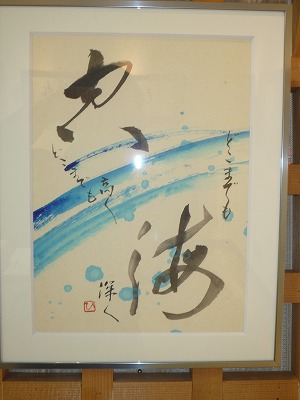 空
どこまでも
高く
海
どこまでも
深く